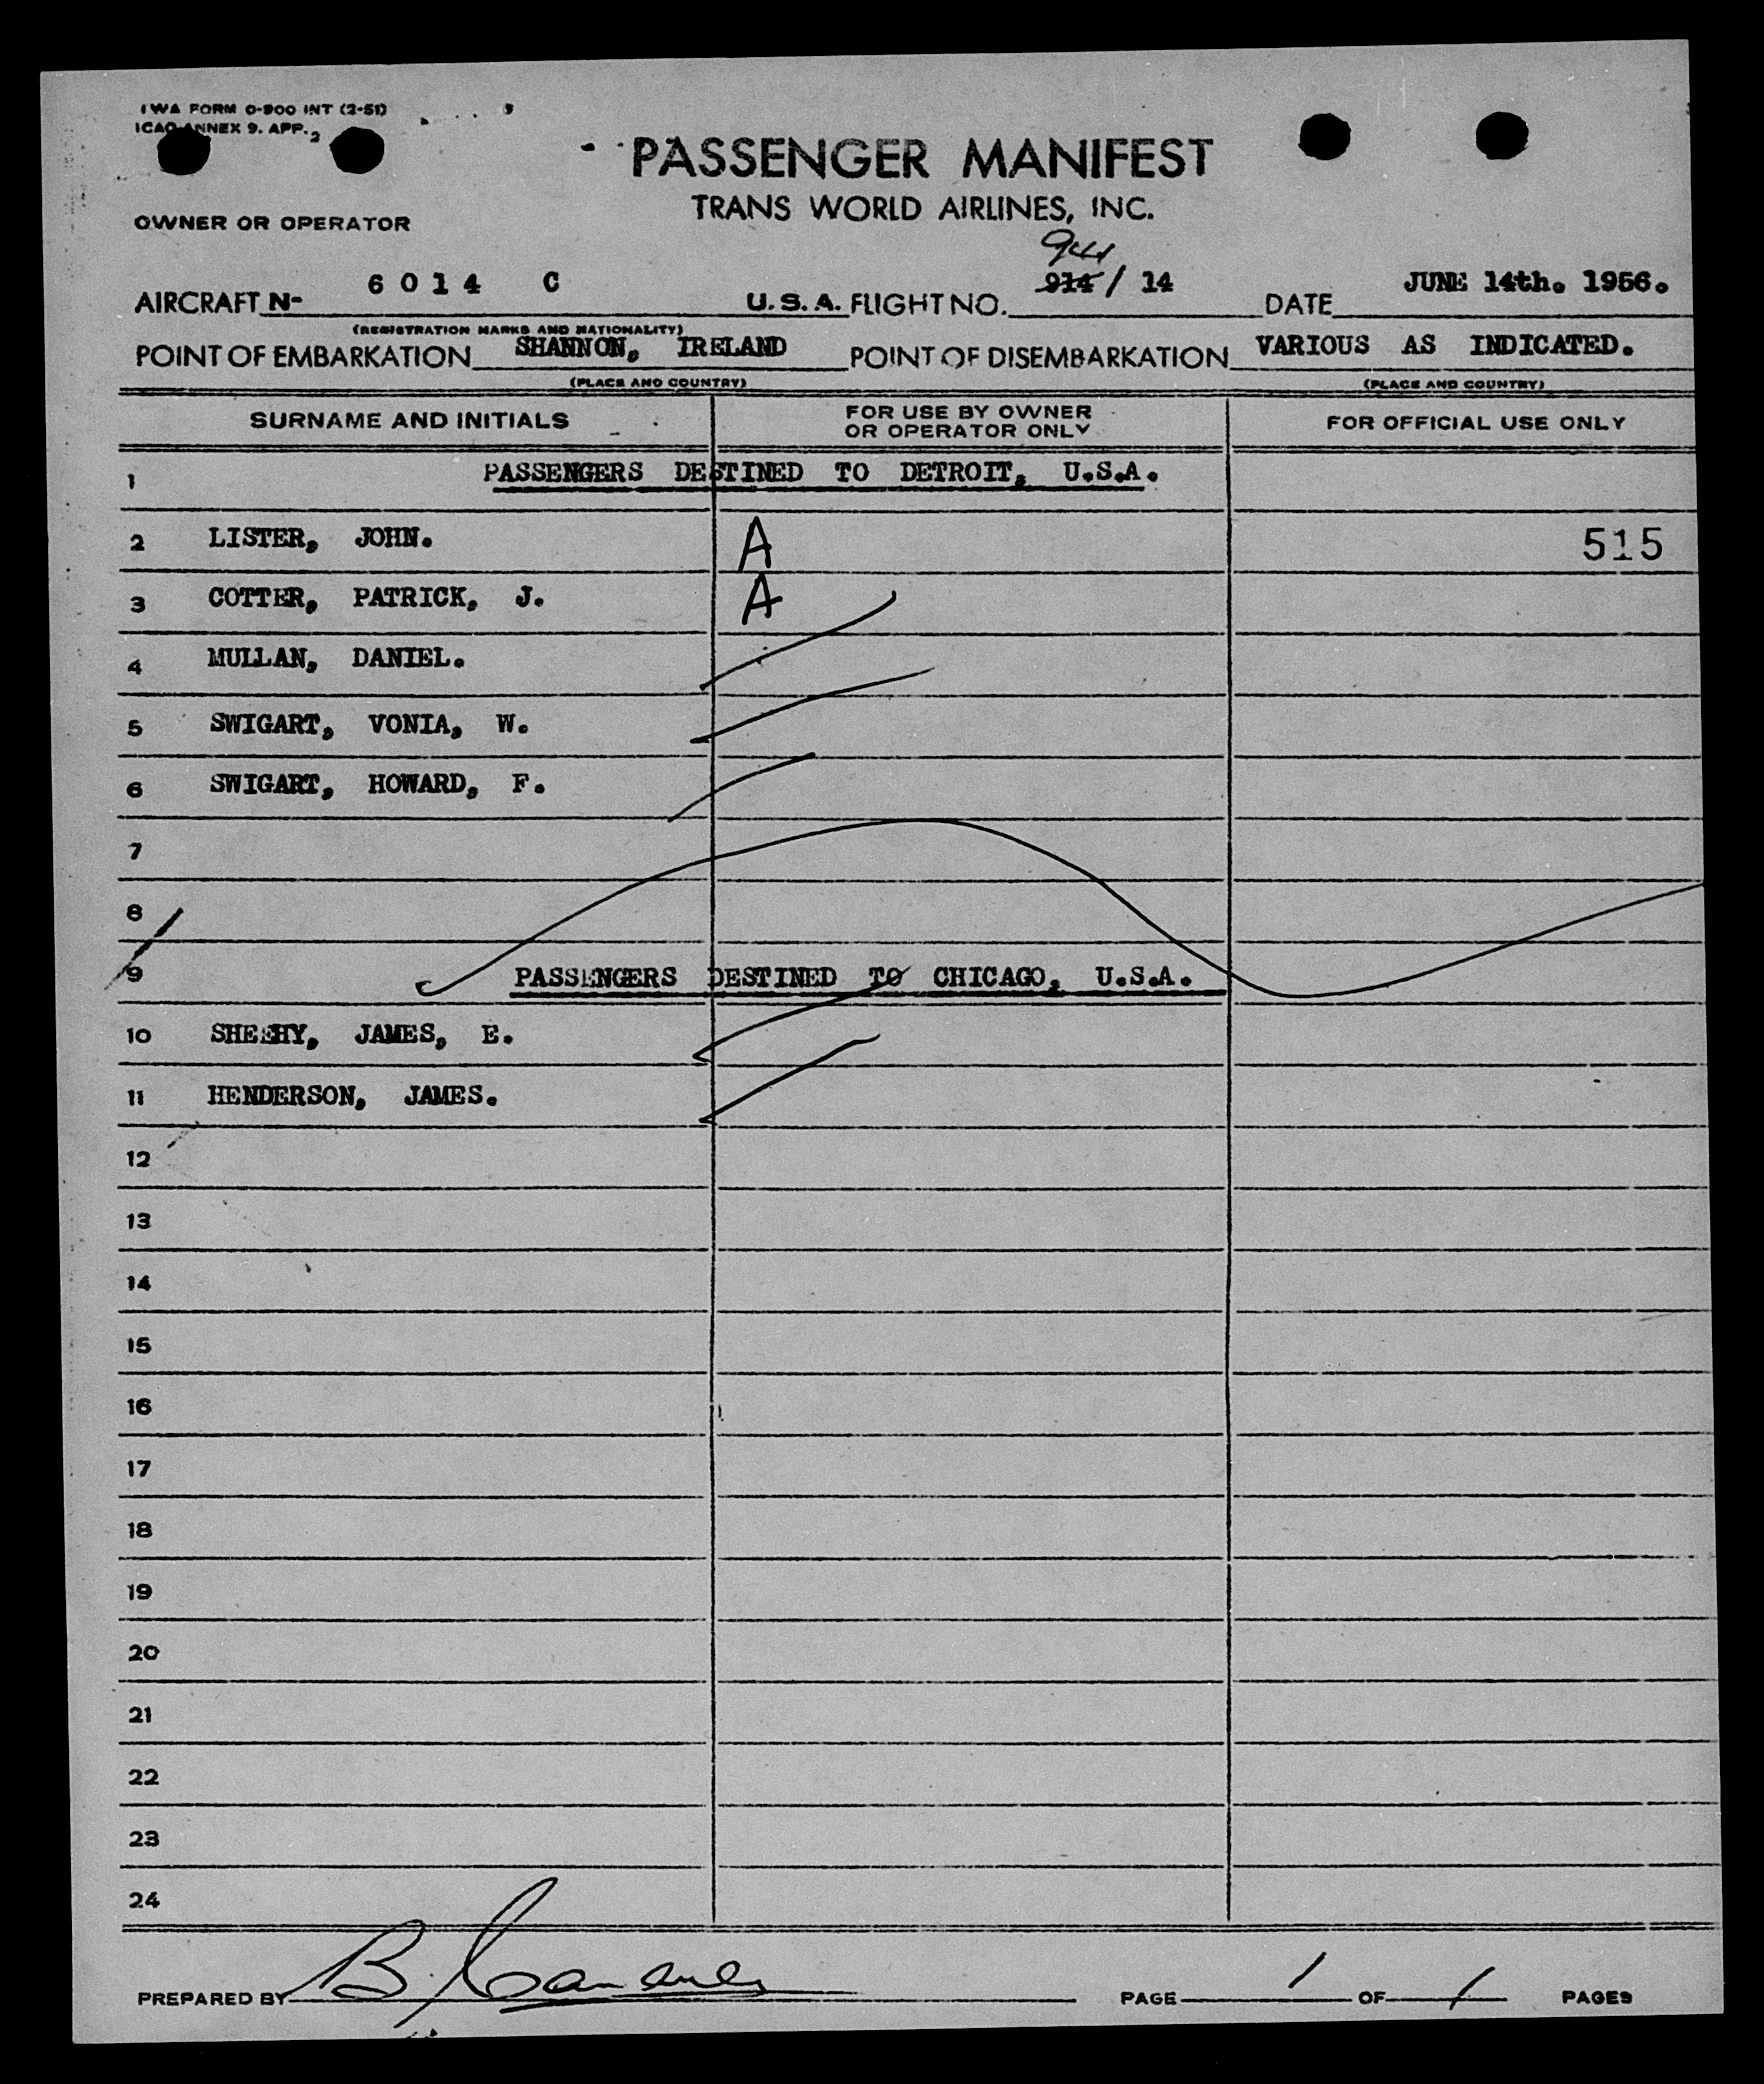 TWA FORM O-900 INT (2-51)
ICAO ANNEX 9. APP. 2
PASSENGER MANIFEST
TRANS WORLD AIRLINES, INC.
OWNER OR OPERATOR
AIRCRAFT N- 6014 C U.S.A. FLIGHT NO. 914 / 14 DATE JUNE 14th. 1956.
(REGISTRATION MARKS AND NATIONALITY)
POINT OF EMBARKATION SHANNON, IRELAND POINT OF DISEMBARKATION VARIOUS AS INDICATED.
(PLACE AND COUNTRY) (PLACE AND COUNTRY)
SURNAME AND INITIALS FOR USE BY OWNER OR OPERATOR ONLY FOR OFFICIAL USE ONLY
1 PASSENGERS DESTINED TO DETROIT, U.S.A.
2 LISTER, JOHN. A 515
3 COTTER, PATRICK, J. A
4 MULLAN, DANIEL.
5 SWIGART, VONIA, W.
6 SWIGART, HOWARD, F.
7
8
9 PASSENGERS DESTINED TO CHICAGO, U.S.A.
10 SHEEHY, JAMES, E.
11 HENDERSON, JAMES.
12
13
14
15
16
17
18
19
20
21
22
23
24
PREPARED BY B. PAGE 1 OF 1 PAGES